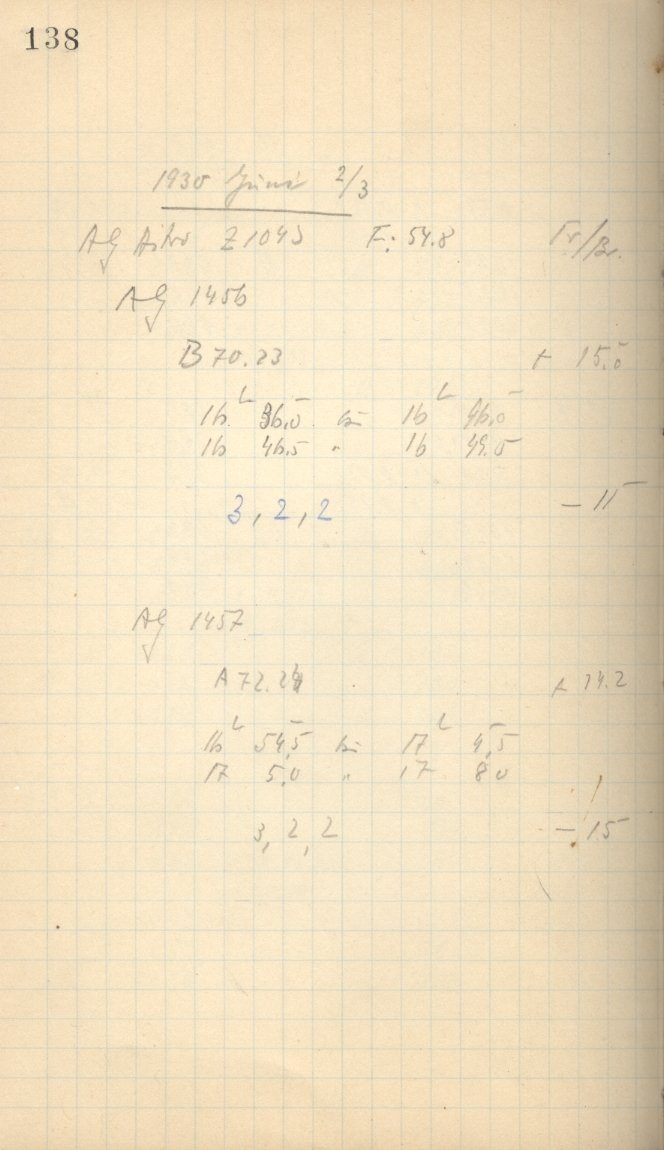 138
1930 Juni 2/3
AG Astro Z 1043 F: 54.8 Fr/Br.
AG 1456
B 70.23 + 15.0
16 h 36.5 bis 16 h 46.0
16 46.5 " 16 49.5
3, 2, 2 – 11
AG 1457
A 72.24 + 14.2
16 h 54.5 bis 17 h 4.5
17 5.0 " 17 8.0
3, 2, 2 – 15